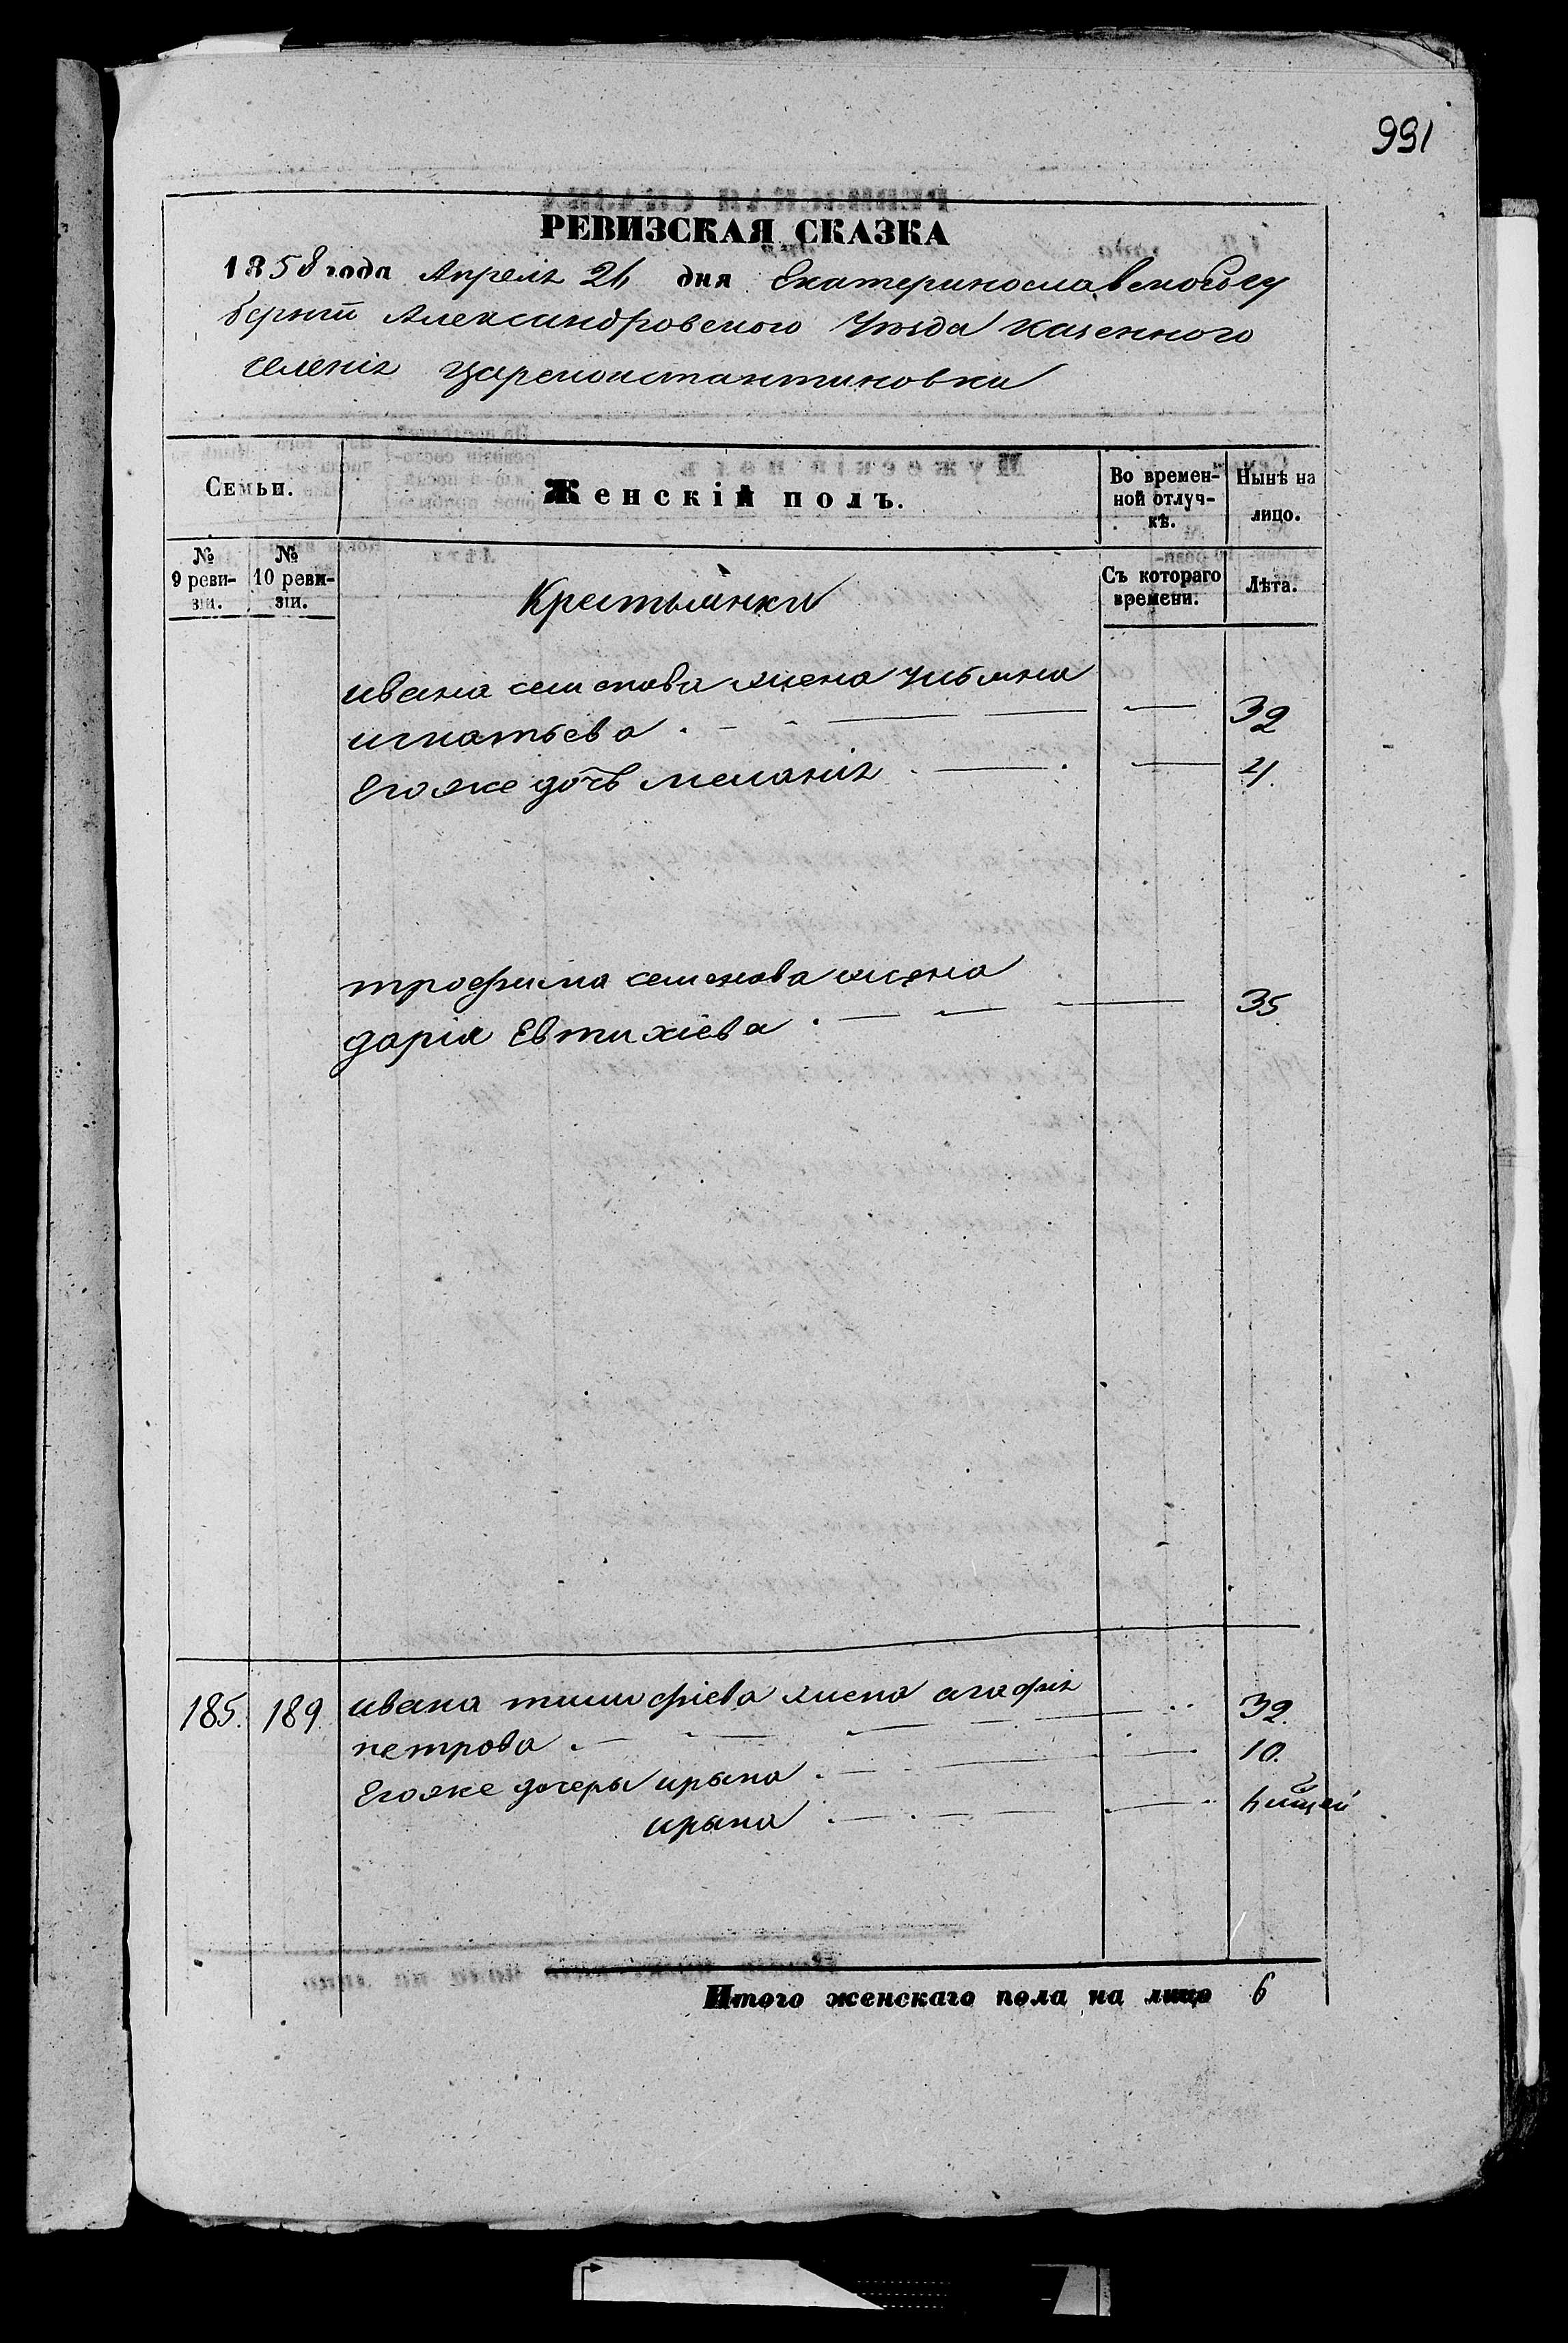 991
РЕВИЗСКАЯ СКАЗКА
1858 года Апреля 26 дня Екатеринославской гу
берніи Александровского Уезда казенного
селенія Цареконстантиновки
Семьи.
Женскій полъ.
Во времен-
ной отлуч-
кѣ.
Нынѣ на
лицо.
№
9 реви-
зіи.
№
10 реви-
зіи.
Съ котораго
времени.
Лѣта.
Крестьянки
ивана семенова жена ульяна
игнатьева 32
Егоже дочь меланія 4
трофима семенова жена
дарія Евтихіева 35
185. 189 ивана тимофіева жена агафія 32.
петрова
Егоже дочеры ирына 10.
ирына
Итого женскаго пола на лицо 6